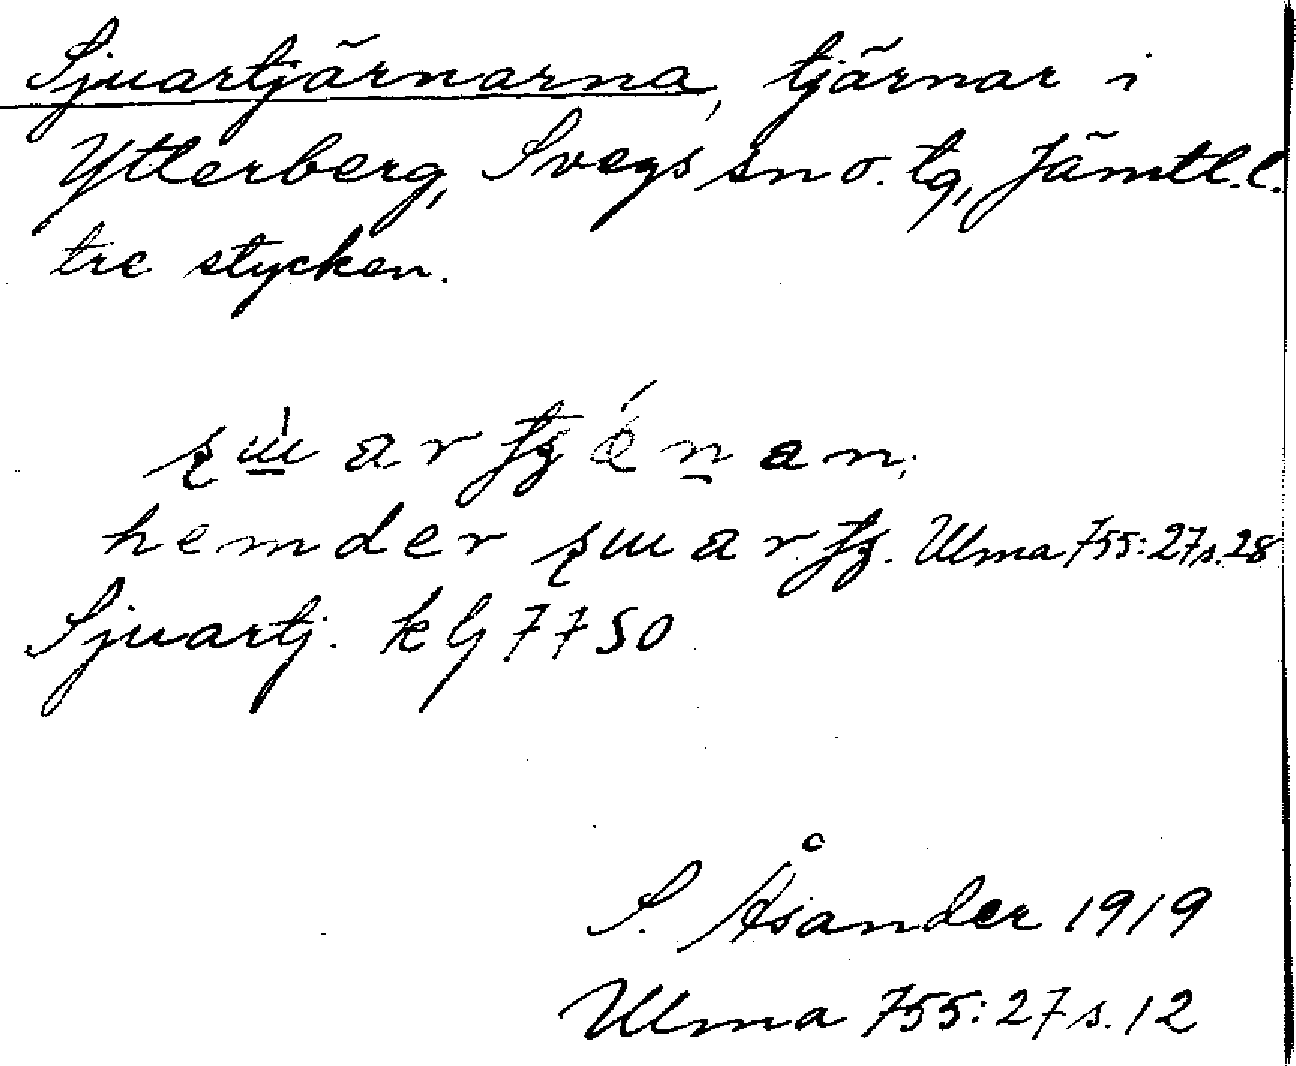 Sjuartjärnarna, tjärnar i
Ytterberg, Svegs sn o. tg, Jämtl. l.
tre stycken.
hemder
Ulma 755:27 s. 28
Sjuartj. k G 7750
S. Åsander 1919
Ulma 755:27 s. 12